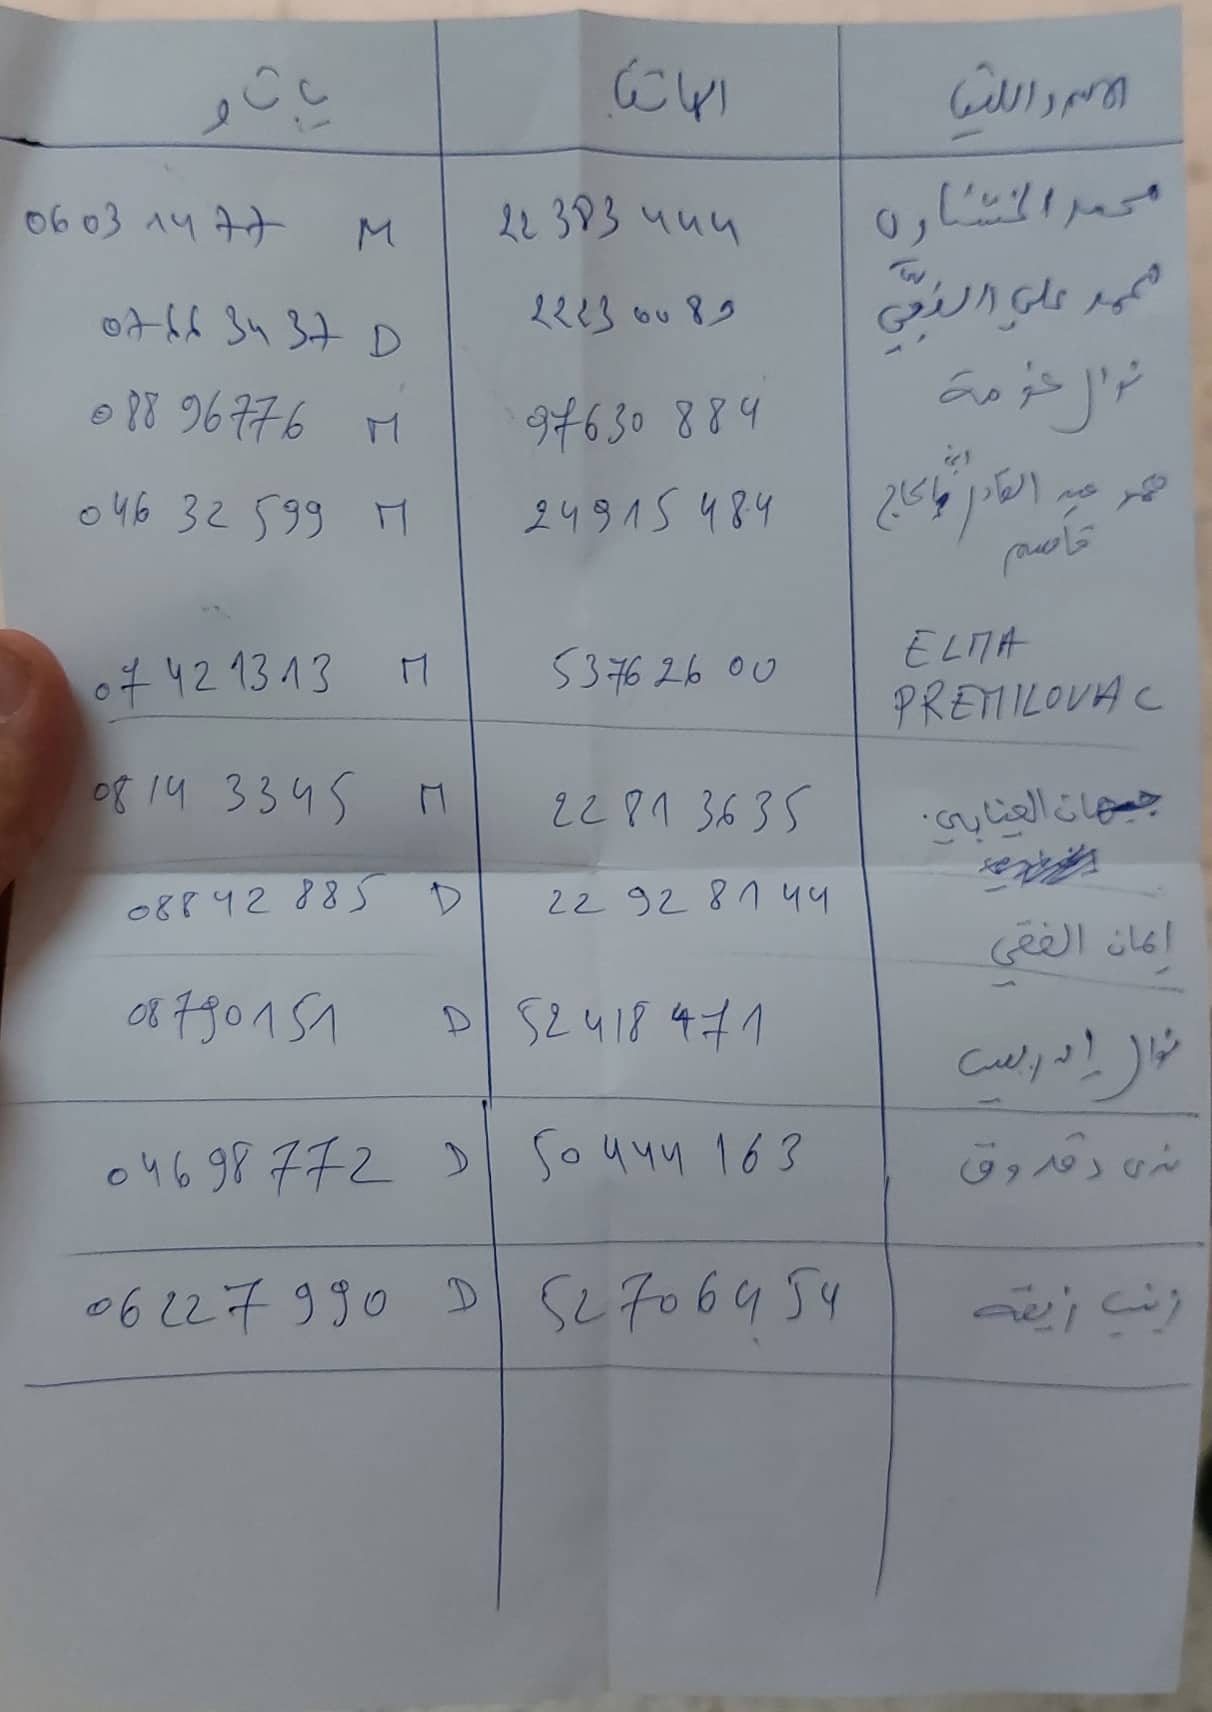 الاسم واللقب الهاتف ب ت و
محمد الخشتاوي 22383444 06031477 M
محمد علي 22230089 07663437 D
نوال خزمة 97630884 08896776 M
محمد عبد القادر ابن بالحاج 24915484 04632599 M
قاسم
ELMA
PREMILOVAC 53762600 07421313 M
جيهان العنابي 22813635 08143345 M
إيمان الفقي 22928144 08842885 D
نوال إدريس 52418471 08790151 D
ندى دقدوق 50444163 04698772 D
زينب زيقة 52706454 06227990 D